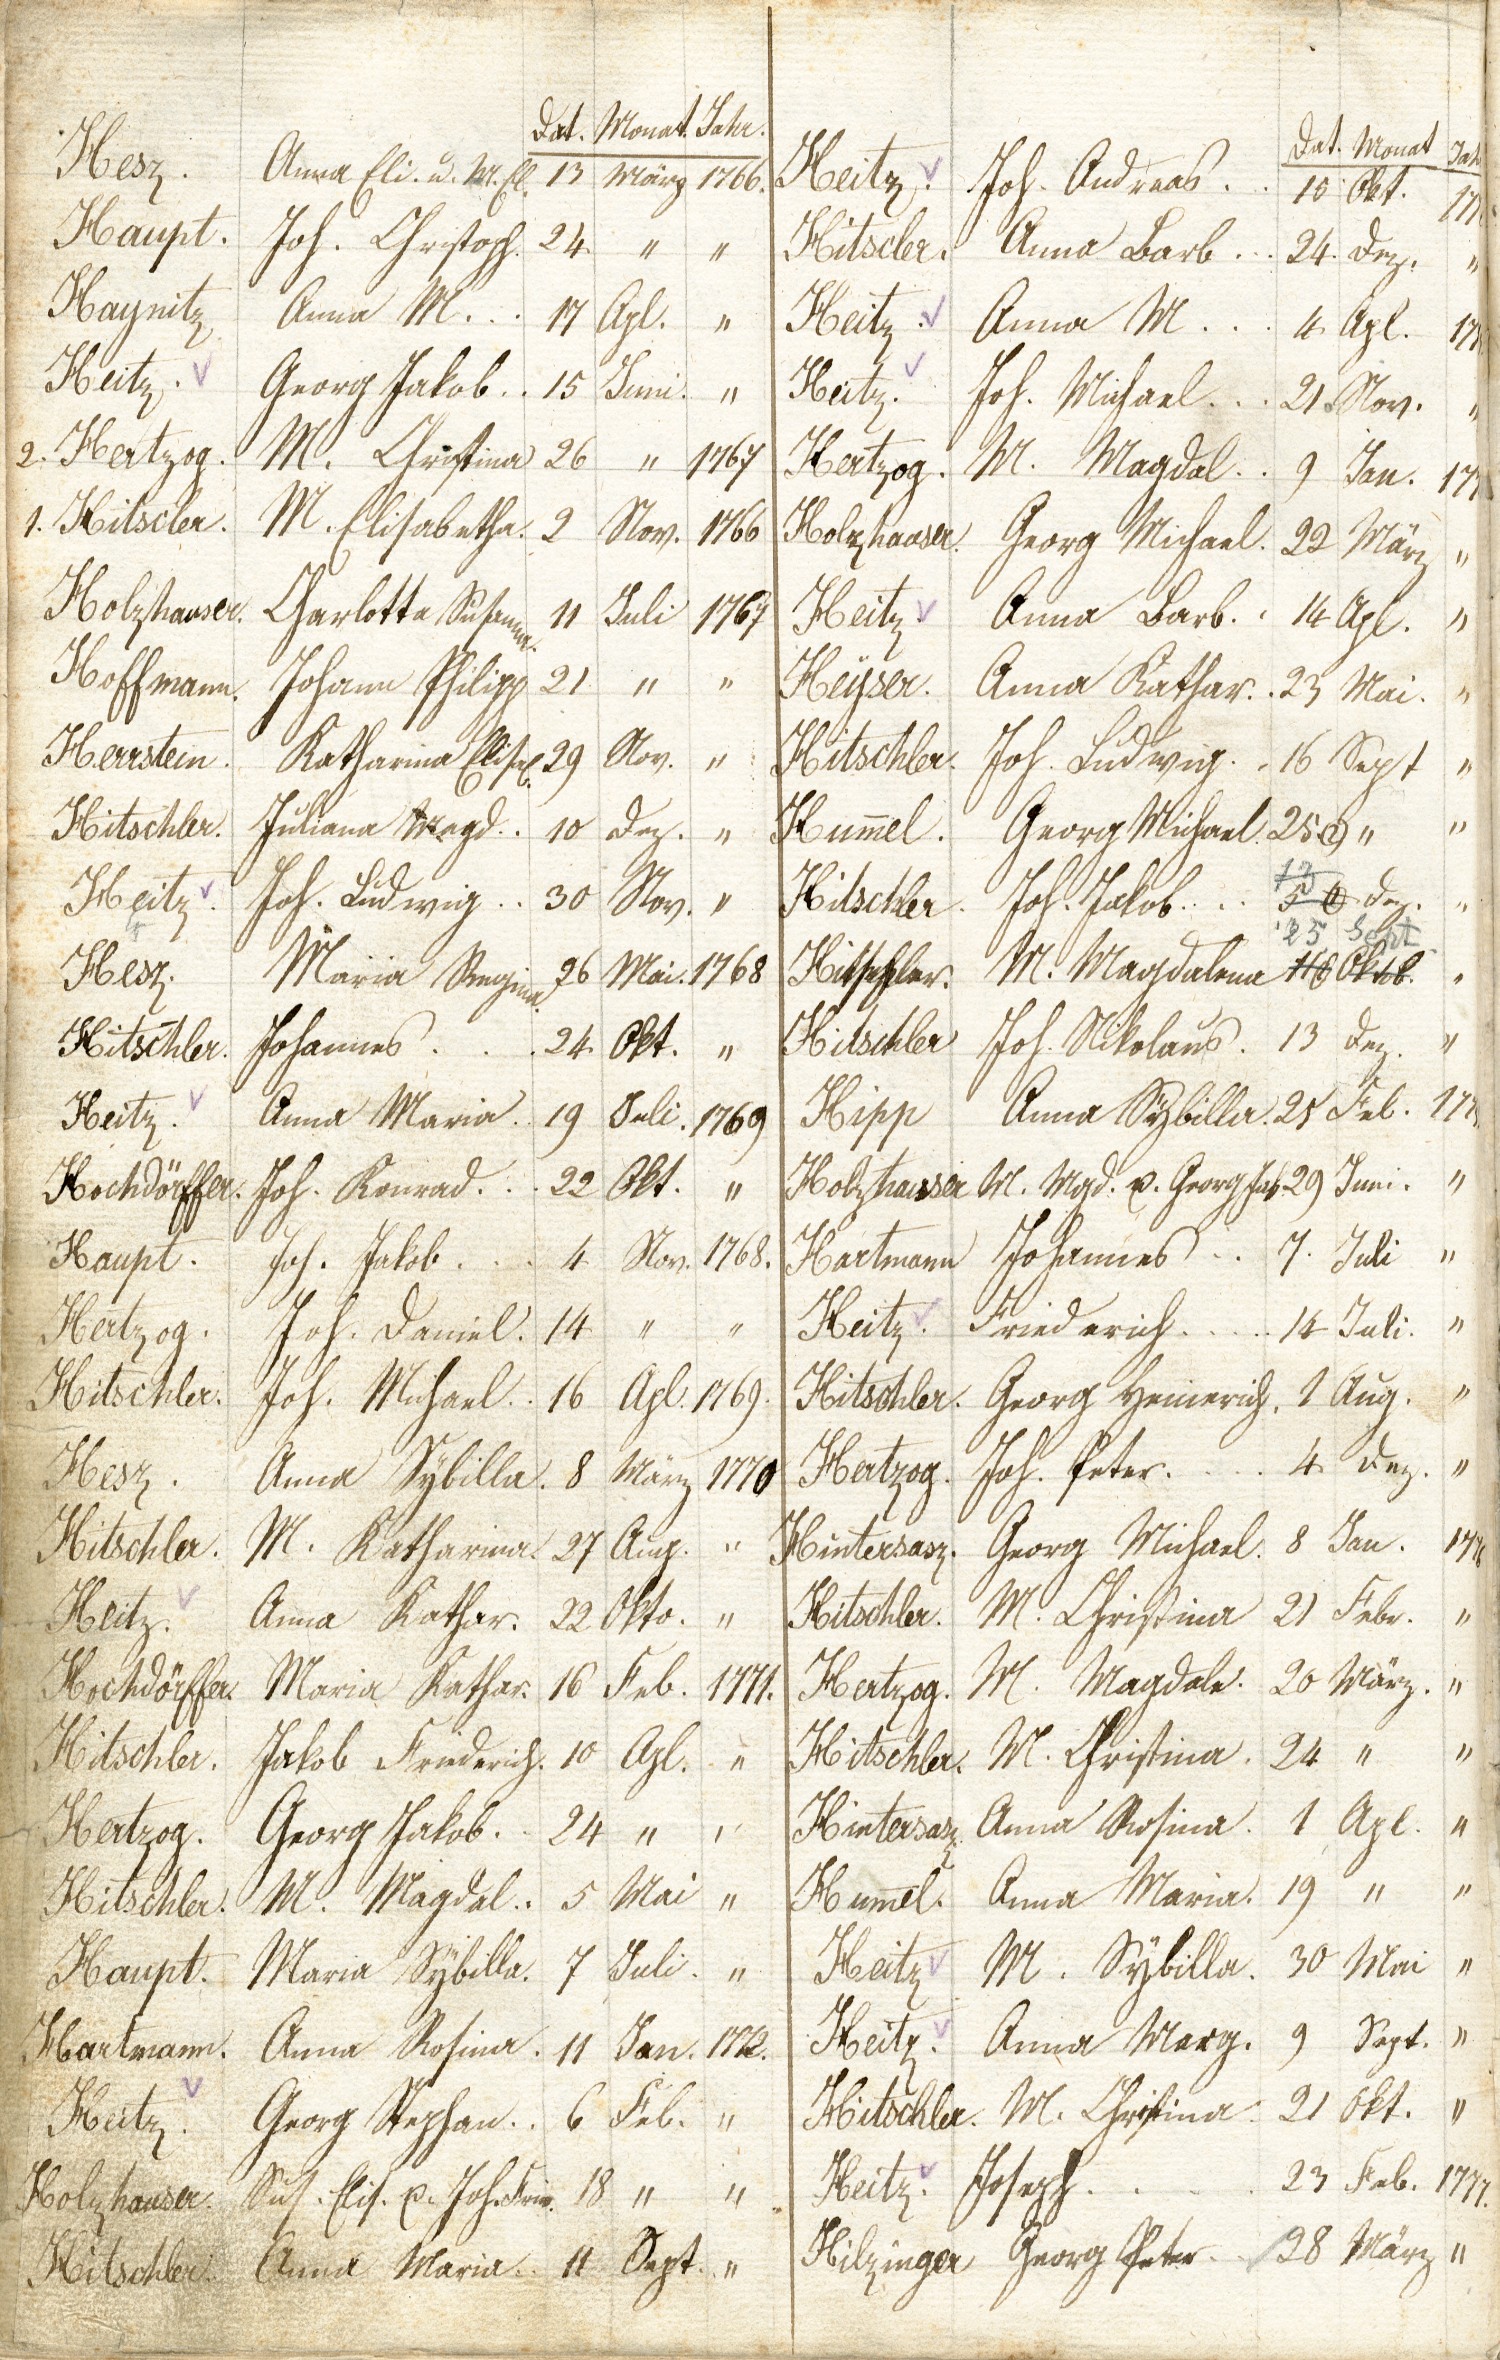 Dat. Monat. Jahr.
Hesz. Anna Eli. u. M. El. 13 März 1766.
Haupt. Joh. Christoph. 24 " "
Haynitz Anna M... 17 Apl. "
Heitz. Georg Jakob.. 15 Juni. "
2. Hertzog. M. Christina 26 " 1767
1. Hitscler. M. Elisabetha. 2 Nov. 1766
Holzhauser. Charlotta Susanna. 11 Juli 1767
Hoffmann. Johann Philipp 21 " "
Herrstein. Katharina Elis. 29 Nov. "
Hitschler. Juliana Magd.. 10 Dez. "
Heitz. Joh. Ludwig.. 30 Nov. "
Hesz. Maria Regina 26 Mai. 1768
Hitschler. Johannes... 24. Okt. "
Heitz. Anna Maria. 19 Juli. 1769
Hochdörffer. Joh. Konrad... 22 Okt. "
Haupt. Joh. Jakob... 4 Nov. 1768.
Hertzog. Joh. Daniel. 14 " "
Hitschler. Joh. Michael.. 16 Apl. 1769.
Hesz. Anna Sÿbilla. 8 März 1770
Hitschler. M. Katharina. 27 Aug. "
Heitz. Anna Kathar. 22 Okto. "
Hochdörffer. Maria Kathar. 16 Feb. 1771.
Hitschler. Jakob Friederich. 10 Apl. "
Hertzog. Georg Jakob. 24 " "
Hitschler. M. Magdal.. 5 Mai "
Haupt. Maria Sÿbilla. 7 Juli. "
Hartmann. Anna Rosina. 11 Jan. 1772.
Heitz. Georg Stephan.. 6 Feb. "
Holzhauser. Sus. Elis. u. Joh. Frie. 18 " "
Hitschler. Anna Maria.. 11 Sept. "
Dat. Monat Jah
Heitz. Joh. Andreas.. 15 Okt.
Hitscler. Anna Barb... 24. Dez. "
Heitz. Anna M.... 4 Apl.
Heitz. Joh. Michael... 21 Nov. "
Hertzog. M. Magdal.. 9 Jan.
Holzhauser. Georg Michael. 22 März "
Heitz Anna Barb.. 14 Apl. "
Heÿser. Anna Kathar.. 23 Mai. "
Hitschler. Joh. Ludwig.. 16 Sept "
Hum̄el. Georg Michael. 25 " "
Hitschler. Joh. Jakob.... 13 Dez. "
25 Sept
Hitschler. M. Magdalena Oktob. "
Hitschler Joh. Nikolaus. 13 Dez. "
Hipp Anna Sÿbilla. 25 Feb.
Holzhauser M. Mgd. u. Georg Jak 29 Juni. "
Hartmann Johannes.. 7. Juli "
Heitz. Friederich..... 14 Juli. "
Hitschler. Georg Heinerich. 1 Aug. "
Hertzog. Joh. Peter..... 4 Dez. "
Hintersasz. Georg Michael. 8 Jan.
Hitschler. M. Christina 21 Febr. "
Hertzog. M. Magdale. 20 März. "
Hitschler. M. Christina. 24 " "
Hintersasz Anna Rosina. 1 Apl. "
Hum̄el. Anna Maria. 19 " "
Heitz M. Sÿbilla. 30 Mai "
Heitz. Anna Marg. 9 Sept. "
Hitschler. M. Christina. 21 Okt. "
Heitz. Joseph.... 23 Feb. 1777.
Hilzinger Georg Peter.. 28 März "